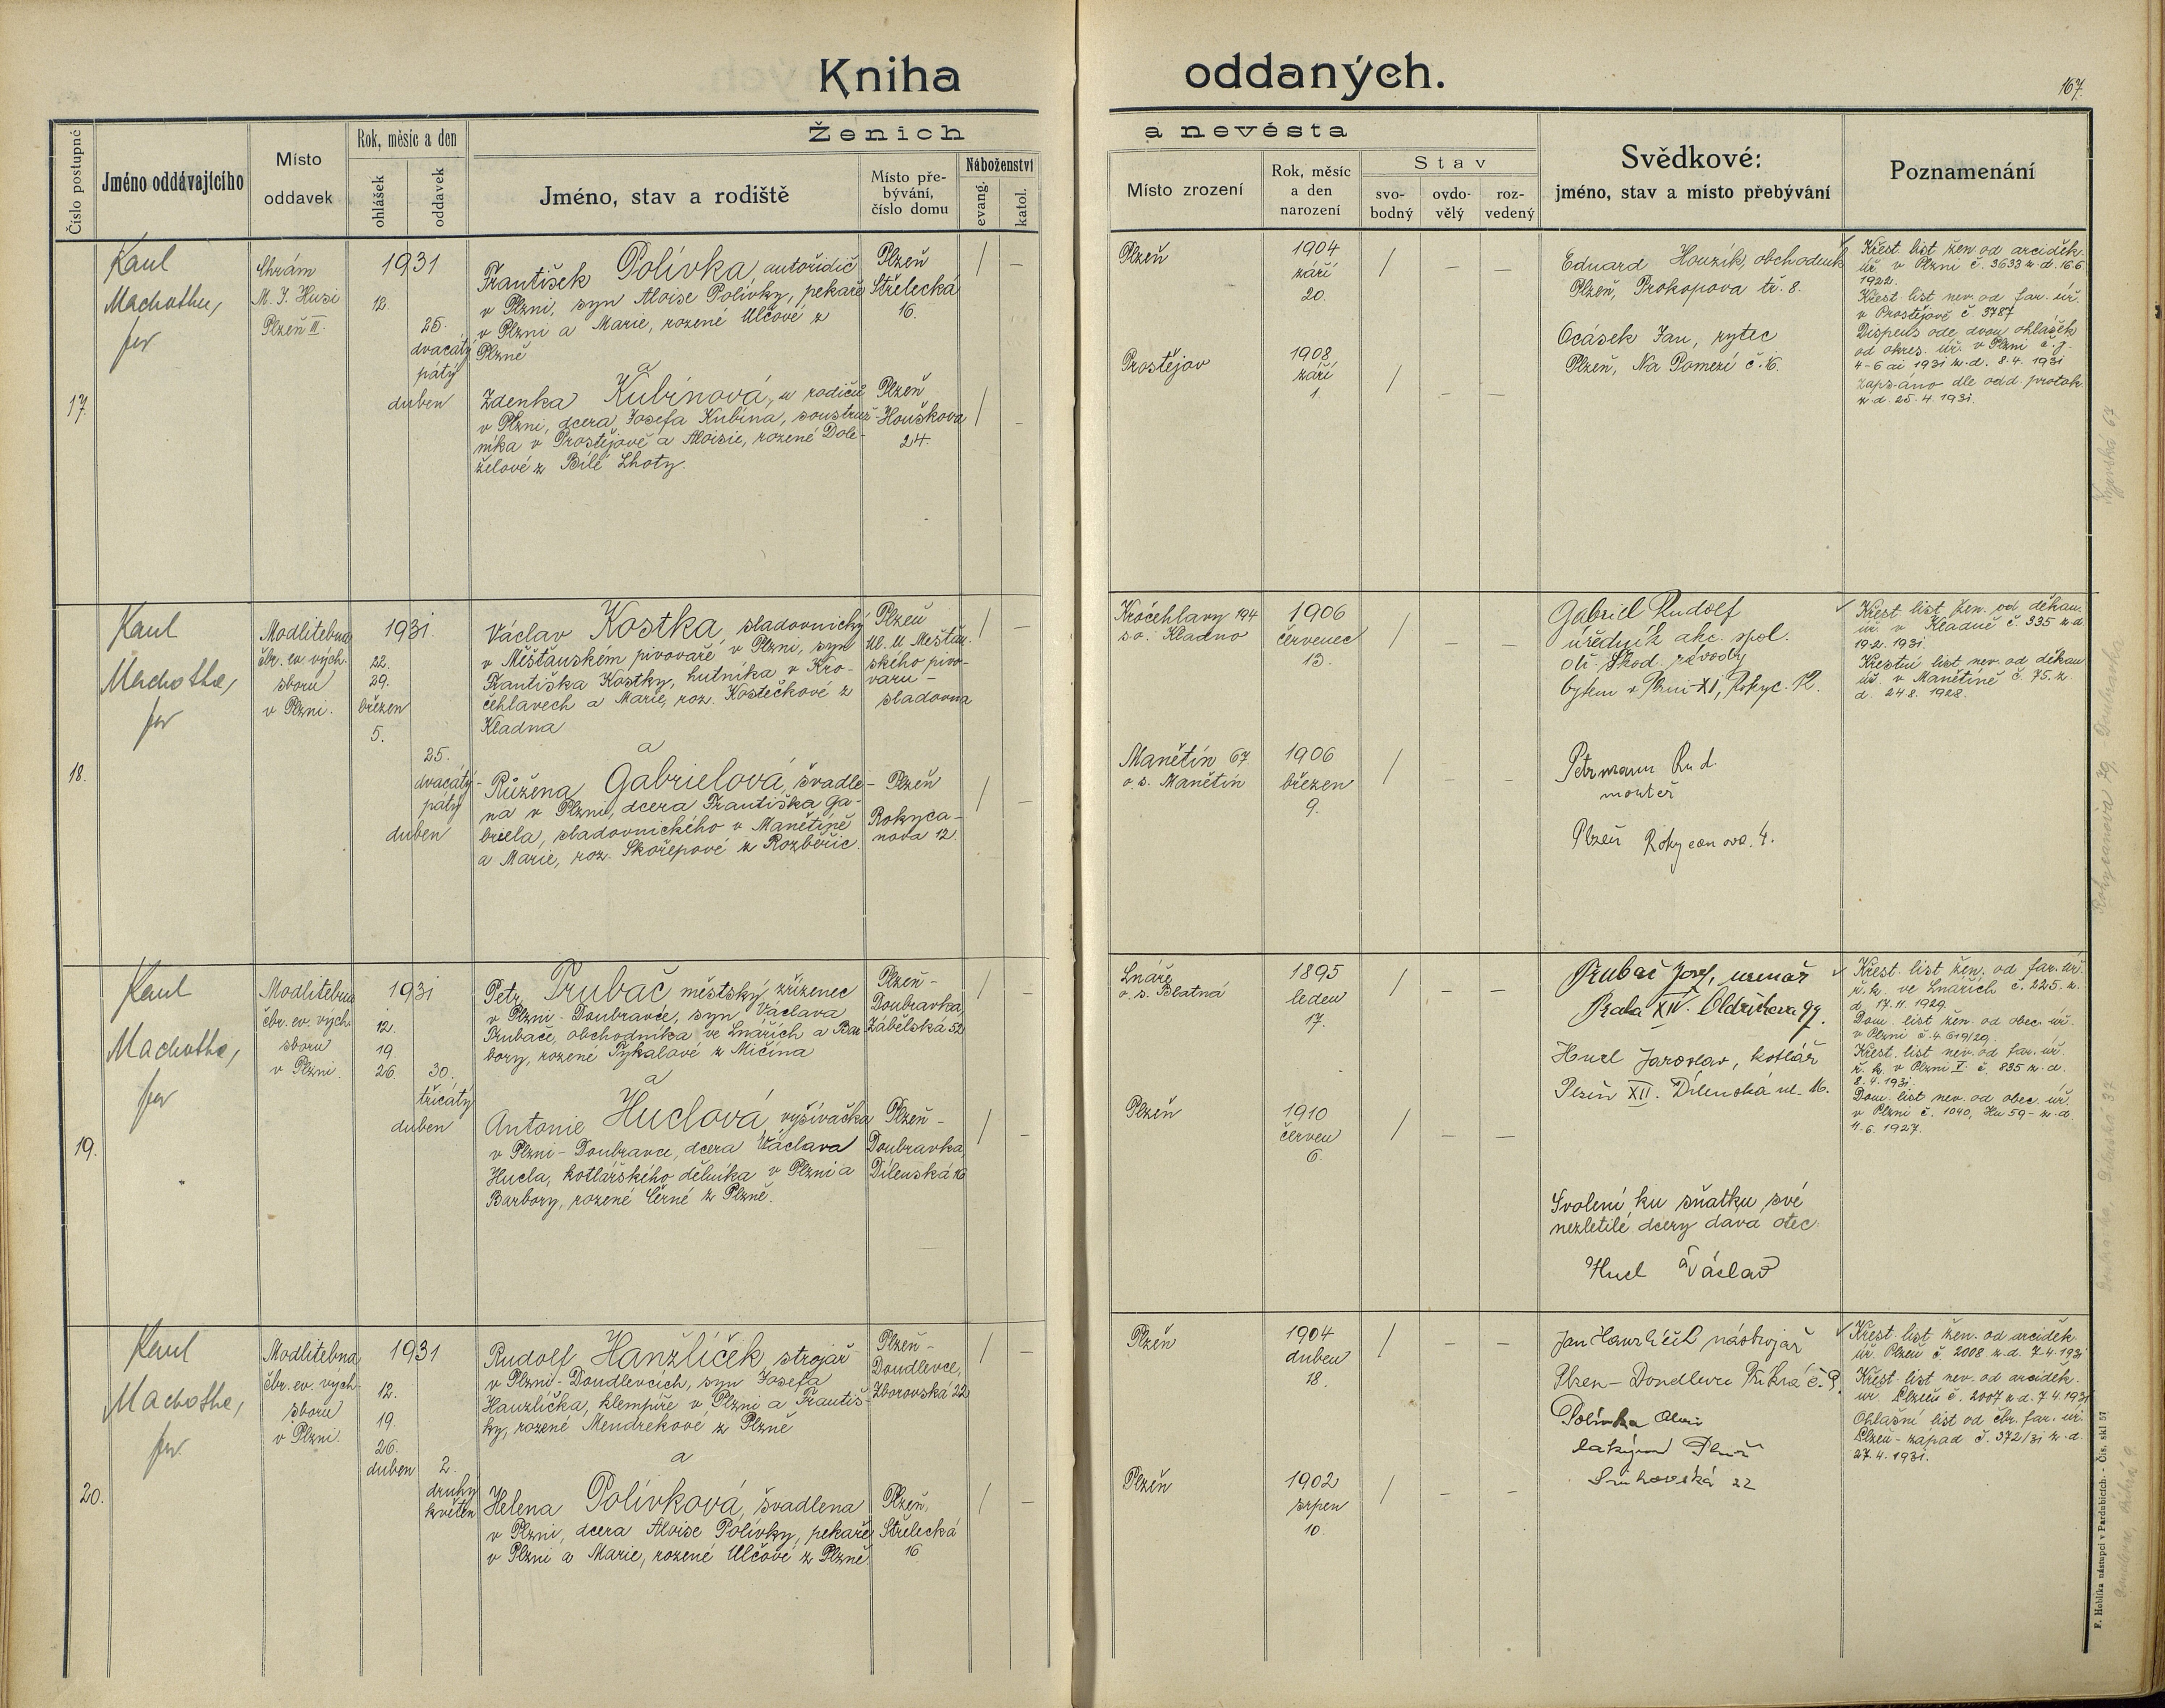 Kniha oddaných.
167.
Číslo postupné
Jméno oddávajícího
Místo
oddavek
Rok, měsíc a den
ohlášek
oddavek
Ženich
a nevěsta
Jméno, stav a rodiště
Místo pře-
bývání,
číslo domu
Náboženství
evang.
katol.
Místo zrození
Rok, měsíc
a den
narození
Stav
svo-
bodný
ovdo-
vělý
roz-
vedený
Svědkové:
jméno, stav a místo přebývání
Poznamenání
17.
Chrám
M. J. Husi
Plzeň II.
1931
12.
25.
dvacátý
pátý
duben
František Polívka, autořidič
v Plzni, syn Aloise Polívky, pekaře
v Plzni a Marie, rozené Ulčové z
Plzně
a
Zdenka Kubínová, u rodičů
v Plzni, dcera Josefa Kubína, soustruž-
níka v Prostějově a Aloisie, rozené Dole-
želové z Bílé Lhoty.
Plzeň
Střelecká
16.
Plzeň
Houškova
24.
/ –
/ –
Plzeň
Prostějov
1904
září
20.
1908
září
1.
/ – –
/ – –
Eduard Houzík, obchodník
Plzeň, Prokopova tř. 8.
Ocásek Jan, rytec
Plzeň, Na Pomezí č. 16.
Křest. list žen. od arciděk.
úř. v Plzni č. 3633 z. d. 16.6.
1922.
Křest list nev. od far. úř.
v Prostějově č. 3787
Dispens ode dvou ohlášek
od okres. úř. v Plzni č. j.
4-6 ai 1931 z. d. 8.4. 1931
zapsáno dle odd. protok.
z d. 25. 4. 1931.
18.
Modlitebna
čbr. ev. vých.
sboru
v Plzni.
1931.
22.
29.
březen
5.
25.
dvacátý
pátý
duben
Václav Kostka, sladovnický
v Měšťanském pivovaře v Plzni, syn
Františka Kostky, hutníka v Kro-
čehlavech a Marie, roz. Kostečkové z
Kladna
a
Růžena Gabrielová, švadle-
na v Plzni, dcera Františka Ga-
briela, sladovnického v Manětíně
a Marie, roz. Skořepové z Rozběřic.
Plzeň
Ul. U Měšťan-
ského pivo-
varu –
sladovna
Plzeň
Rokyca-
nova 12.
/ –
/ –
Kročehlavy 194
s.o. Kladno
Manětín 67
o. s. Manětín
1906
červenec
13.
1906
březen
9.
/ – –
/ – –
Gabriel Rudolf
úředník akc. spol.
dř. Škod. závody
bytem v Plzni XI, Rokyc. 12.
Petrmann Rud.
montér
Plzeň Rokycanova. 4.
Křest. list žen. od děkan.
úř. v Kladně č. 335 z d.
19.2. 1931.
Křestní list nev. od děkan
úř. v Manětíně č. 75. z.
d. 24.8. 1928.
19.
Modlitebna
čbr. ev. vých.
sboru
v Plzni.
1931
12.
19.
26.
30.
třicátý
duben
Petr Trubač městský zřízenec
v Plzni - Doubravce, syn Václava
Trubače, obchodníka ve Lnářích a Bar
bory, rozené Tykalové z Mičína
a
Antonie Huclová, vyšívačka
v Plzni - Doubravce, dcera Václava
Hucla, kotlářského dělníka v Plzni a
Barbory, rozené Černé z Plzně.
Plzeň -
Doubravka,
Zábělská 52
Plzeň -
Doubravka,
Dílenská 16
/ –
/ –
Lnáře
o. s. Blatná
Plzeň
1895
leden
17.
1910
červen
6.
/ – –
/ – –
Trubač Josef,
Praha XIV. Oldřichova
Hucl Jaroslav, kotlář
Plzeň XII. Dílenská ul. 16.
Svolení ku sňatku své
nezletilé dcery dává otec:
Hucl Václav
Křest. list žen. od far. úř.
ř. k. ve Lnářích č. 225. z.
d. 17. 11. 1929.
Dom. list žen. od obec. úř.
v Plzni č. 4.619/29.
Křest. list nev. od far. úř.
ř. k. v Plzni V. č. 835 z. d.
8. 4. 1931.
Dom. list nev. od obec. úř.
v Plzni č. 1040, Hu 59 - z. d.
4. 6. 1927.
20.
Modlitebna
čbr. ev. vých.
sboru
v Plzni.
1931
12.
19.
26.
duben
2.
druhý
květen
Rudolf Hanzlíček strojař
v Plzni - Doudlevcích, syn Josefa
Hanzlíčka, klempíře v Plzni a Františ-
ky, rozené Mendrekové z Plzně
a
Helena Polívková, švadlena
v Plzni, dcera Aloise Polívky, pekaře
v Plzni a Marie, rozené Ulčové z Plzně
Plzeň -
Doudlevce,
Zborovská 22
Plzeň,
Střelecká
16
/ –
/ –
Plzeň
Plzeň
1904
duben
18.
1902
srpen
10.
/ – –
/ – –
Jan Hanzlíček nástrojař
Plzen – Doudlevce
Polívka Alois
22
Křest. list žen. od arciděk.
úř. Plzeň č. 2008 z. d. 7-4. 1931
Křest. list nev. od arciděk.
úř. Plzeň č. 2007 z d. 7 4. 1931
Ohlašní list od čbr. far. úř.
Plzeň - západ č. 372/31 z. d.
27. 4. 1931.
Rokycanova 79, Doubravka
F. Hoblíka nástupci v Pardubicích. - Čís. skl 57